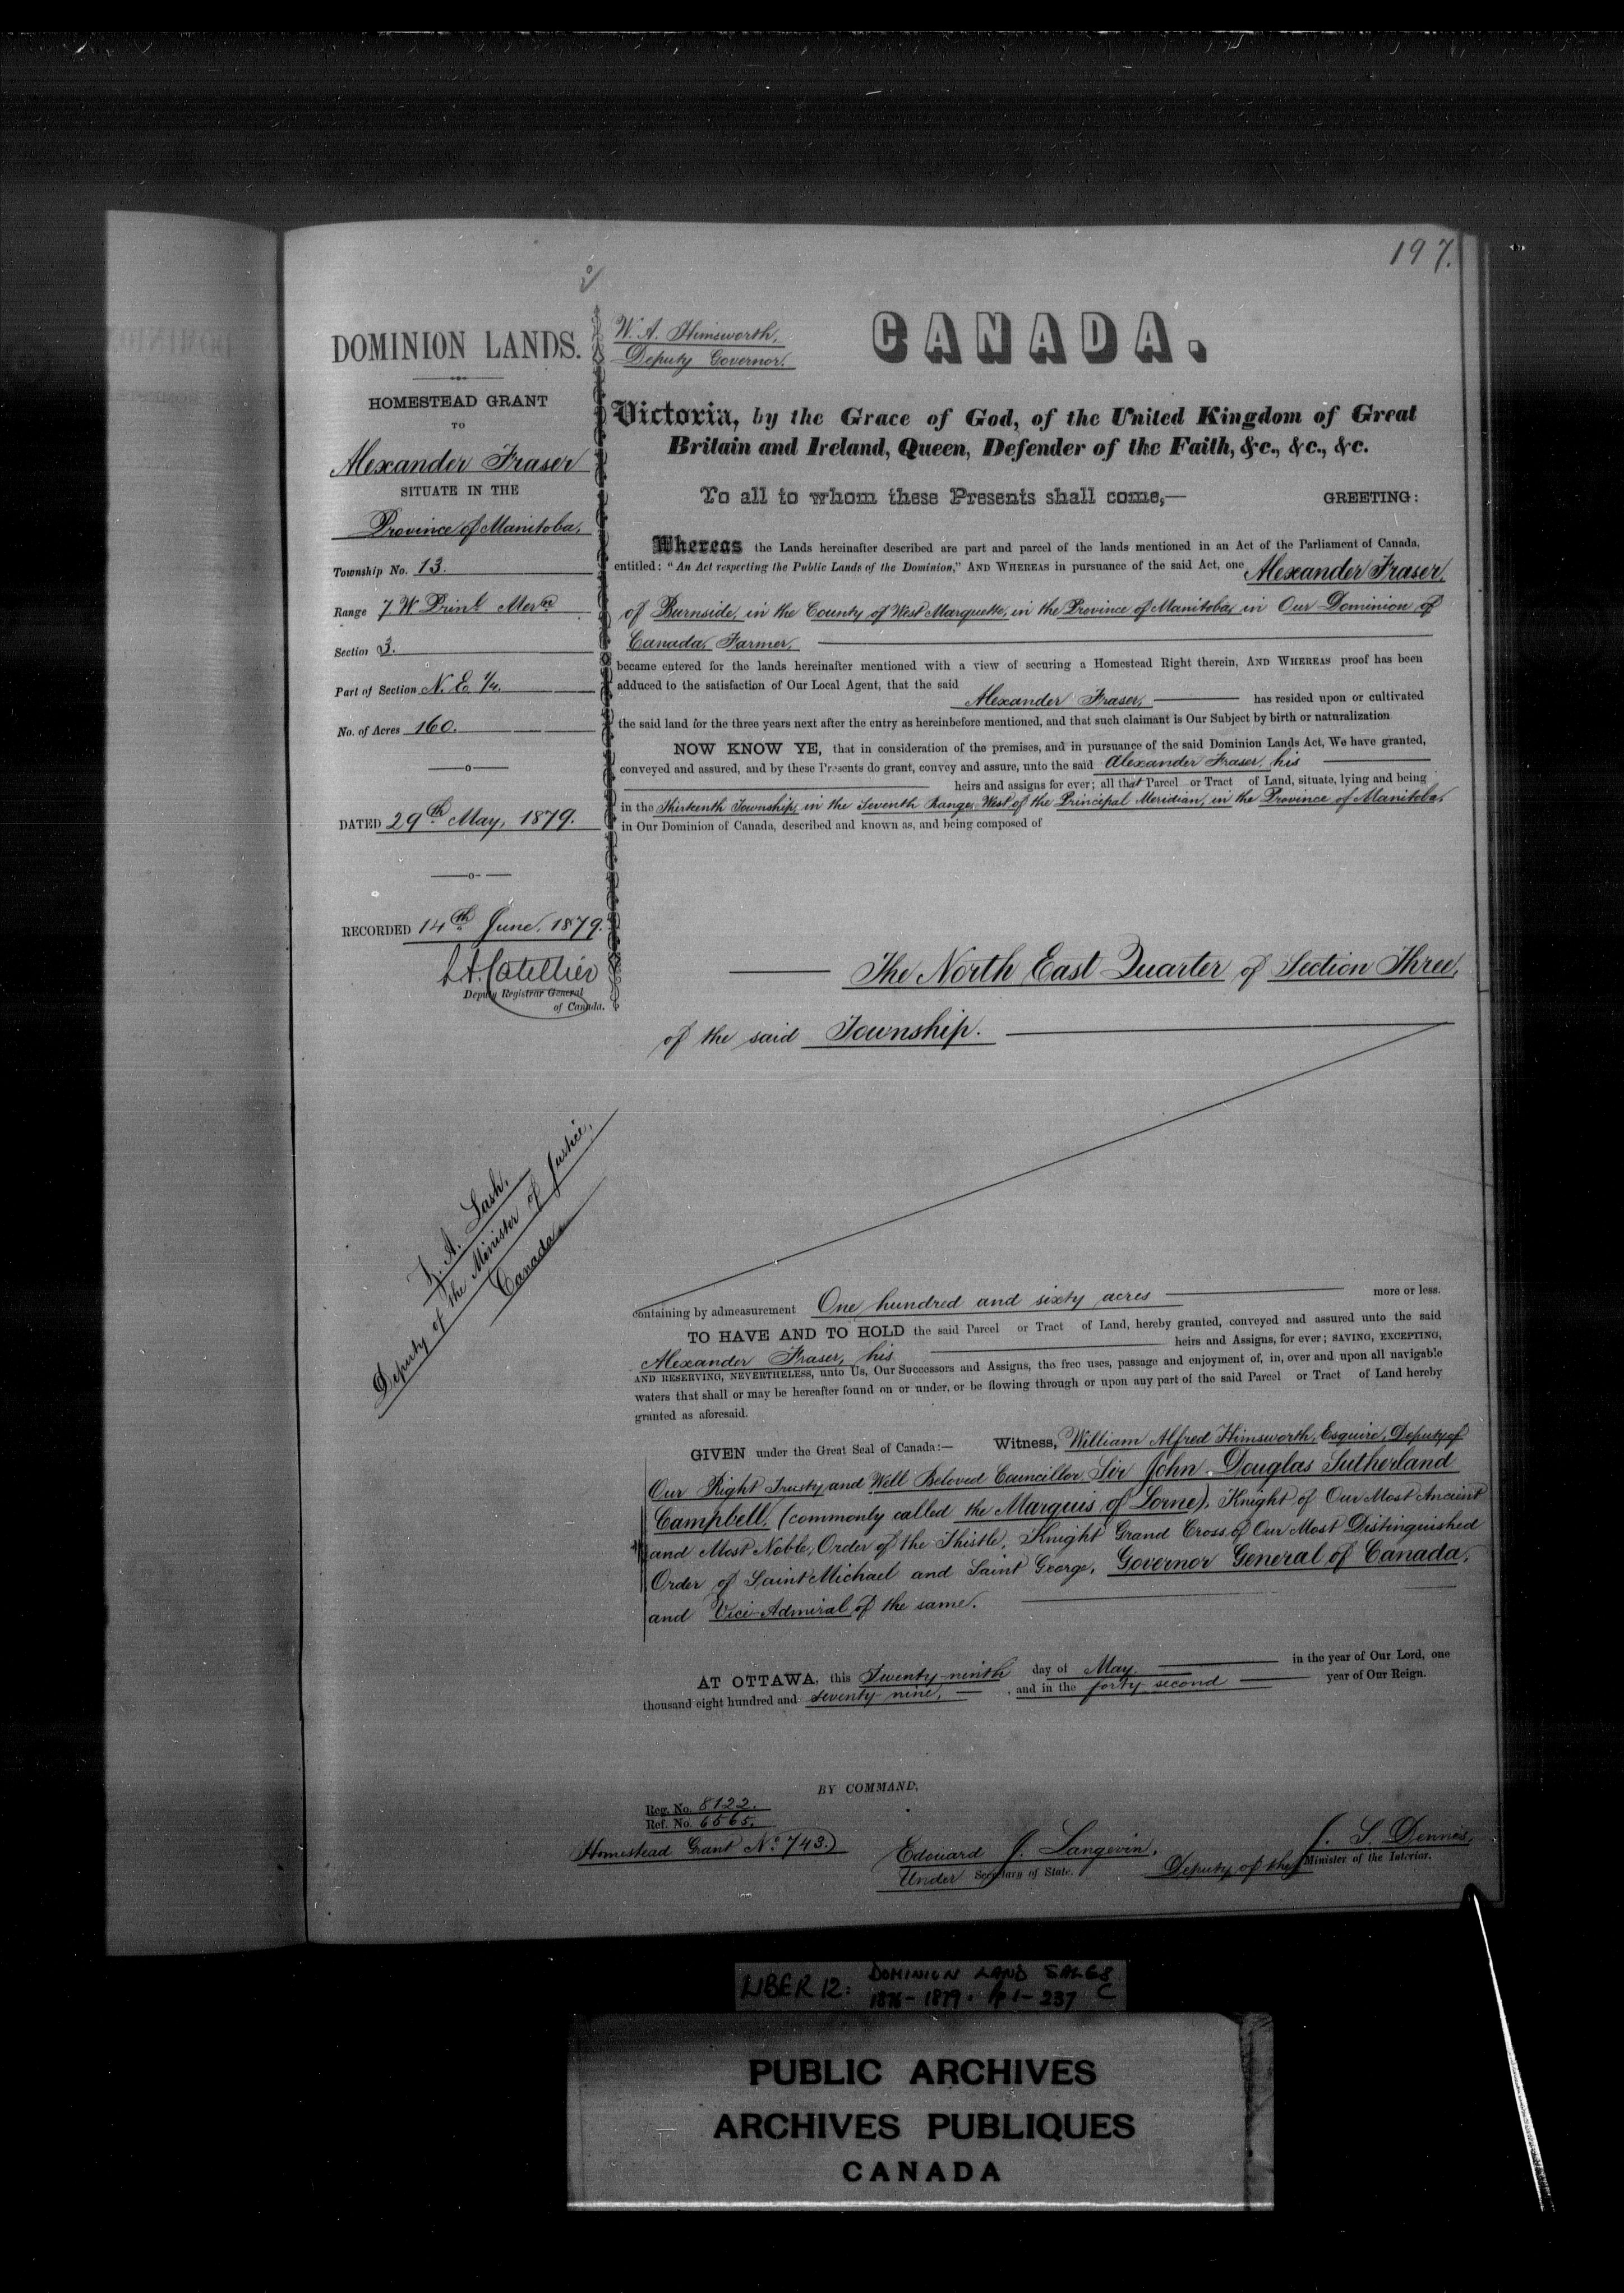 197.
DOMINION LANDS.
HOMESTEAD GRANT
TO
Alexander Fraser
SITUATE IN THE
Province of Manitoba,
Township No. 13.
Range 7 W Prinl Mern
Section 3.
Part of Section N. E. 1/4.
No. of Acres 160.
DATED 29th May, 1879.
RECORDED 14th June, 1879.
Deputy Registrar General
of Canada.
Z. A. Lash,
Deputy of the Minister of Justice,
Canada
W. A. Himsworth,
Deputy Governor.
CANADA.
Victoria, by the Grace of God, of the United Kingdom of Great
Britain and Ireland, Queen, Defender of the Faith, &c., &c., &c.
To all to whom these Presents shall come,— GREETING:
Whereas the Lands hereinafter described are part and parcel of the lands mentioned in an Act of the Parliament of Canada,
entitled: "An Act respecting the Public Lands of the Dominion," AND WHEREAS in pursuance of the said Act, one Alexander Fraser,
of Burnside, in the County of West Marquette, in the Province of Manitoba, in Our Dominion of
Canada, Farmer,
became entered for the lands hereinafter mentioned with a view of securing a Homestead Right therein, AND WHEREAS proof has been
adduced to the satisfaction of Our Local Agent, that the said
Alexander Fraser, has resided upon or cultivated
the said land for the three years next after the entry as hereinbefore mentioned, and that such claimant is Our Subject by birth or naturalization
NOW KNOW YE, that in consideration of the premises, and in pursuance of the said Dominion Lands Act, We have granted,
conveyed and assured, and by these Presents do grant, convey and assure, unto the said Alexander Fraser, his
heirs and assigns for ever; all that Parcel or Tract of Land, situate, lying and being
in the Thirteenth Township, in the Seventh Range, West of the Principal Meridian, in the Province of Manitoba,
in Our Dominion of Canada, described and known as, and being composed of
The North East Quarter of Section Three,
of the said Township.
containing by admeasurement One hundred and sixty acres more or less.
TO HAVE AND TO HOLD the said Parcel or Tract of Land, hereby granted, conveyed and assured unto the said
Alexander Fraser, his heirs and Assigns, for ever; SAVING, EXCEPTING,
AND RESERVING, NEVERTHELESS, unto Us, Our Successors and Assigns, the free uses, passage and enjoyment of, in, over and upon all navigable
waters that shall or may be hereafter found on or under, or be flowing through or upon any part of the said Parcel or Tract of Land hereby
granted as aforesaid.
GIVEN under the Great Seal of Canada:— Witness, William Alfred Himsworth, Esquire, Deputy of
Our Right Trusty and Well Beloved Councillor Sir John Douglas Sutherland
Campbell, (commonly called the Marquis of Lorne), Knight of Our Most Ancient
and Most Noble, Order of the Thistle, Knight Grand Cross of Our Most Distinguished
Order of Saint Michael and Saint George, Governor General of Canada,
and Vice-Admiral of the same.
AT OTTAWA, this Twenty-ninth day of May in the year of Our Lord, one
thousand eight hundred and seventy nine, and in the forty second year of Our Reign.
BY COMMAND,
Reg. No. 8122.
Ref. No. 6565.
Homestead Grant No. 743.)
Edouard J. Langevin,
Under Secretary of State.
J. S. Dennis,
Deputy of the Minister of the Interior.
LIBER 12: DOMINION LAND SALES
1876-1879. pp 1-237 C
PUBLIC ARCHIVES
ARCHIVES PUBLIQUES
CANADA